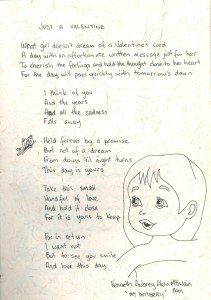 JUST A VALENTINE
What girl doesn't dream of a Valentine's card
A day with an affectionate written message just for her
To cherish the feelings and hold the thought close to her heart
For the day will pass quickly with tomorrow's dawn
I think of you
And the years
And all the sadness
Falls away
Held forever by a promise
But not of a dream
From dawn til night turns
This day is yours
Take this small
Handful of love
And hold it close
For it is yours to keep
For in return
I want not
But to see you smile
And love this day
Kenneth Aubrey
"MY BUTTERFLY"